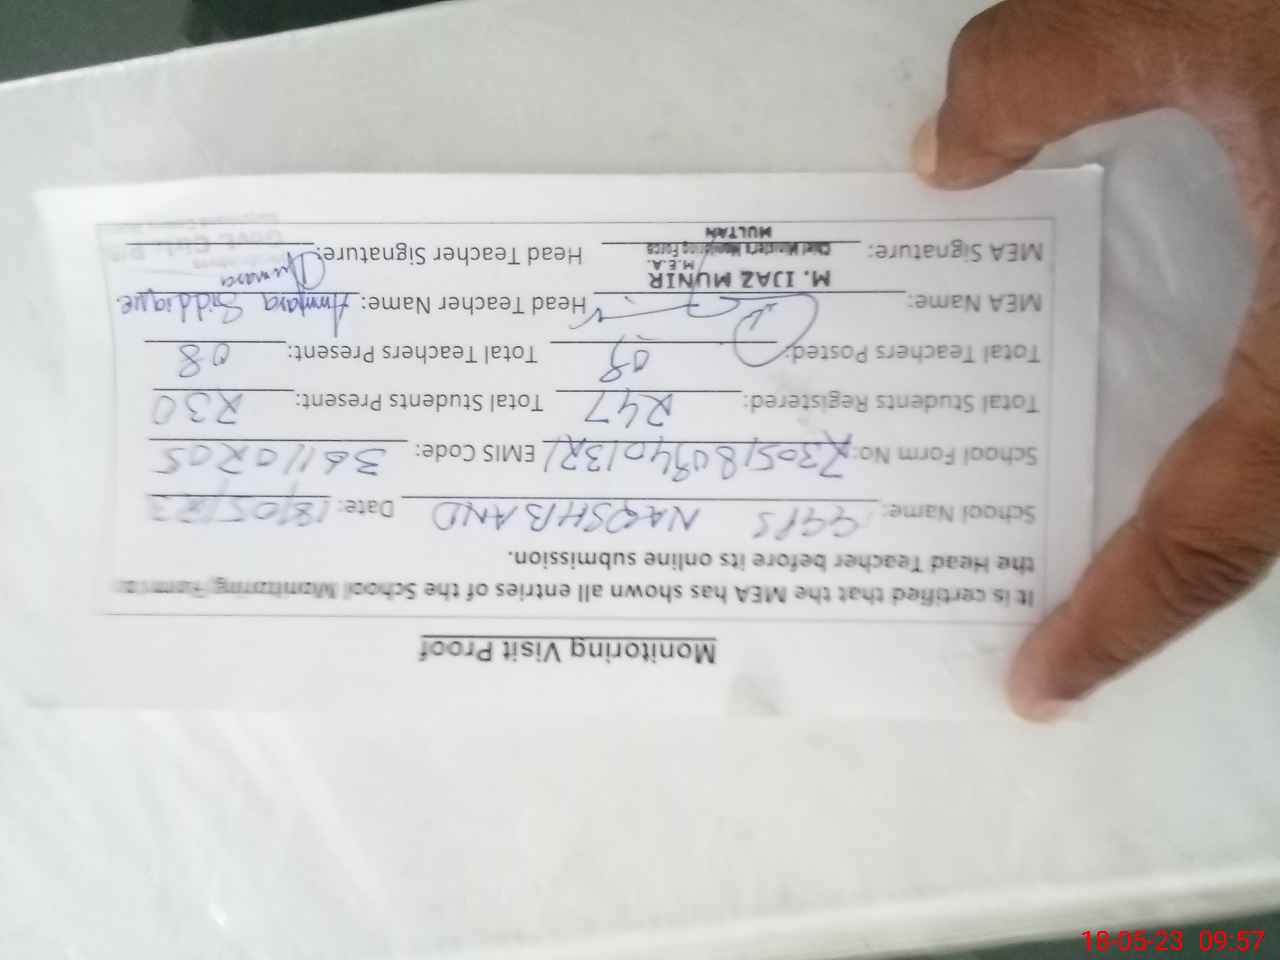 Monitoring Visit Proof
It is certified that the MEA has shown all entries of the School Monitoring
the Head Teacher before its online submission.
School Name: GGPS NAQSHBAND Date: 18/05/23
School Form No: EMIS Code: 36110205
Total Students Registered: 247 Total Students Present: 230
Total Teachers Posted: Total Teachers Present: 08
MEA Name: Head Teacher Name: Ammara Siddique
M. IJAZ MUNIR
M.E.A.
Chief Minister's Monitoring Force
MULTAN
MEA Signature: Head Teacher Signature: Ammara
18-05-23 09:57